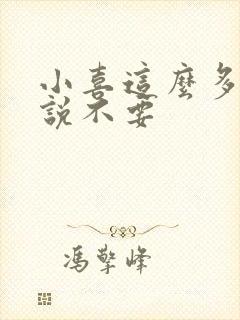 小喜這麼多
說不要
馮擎峰